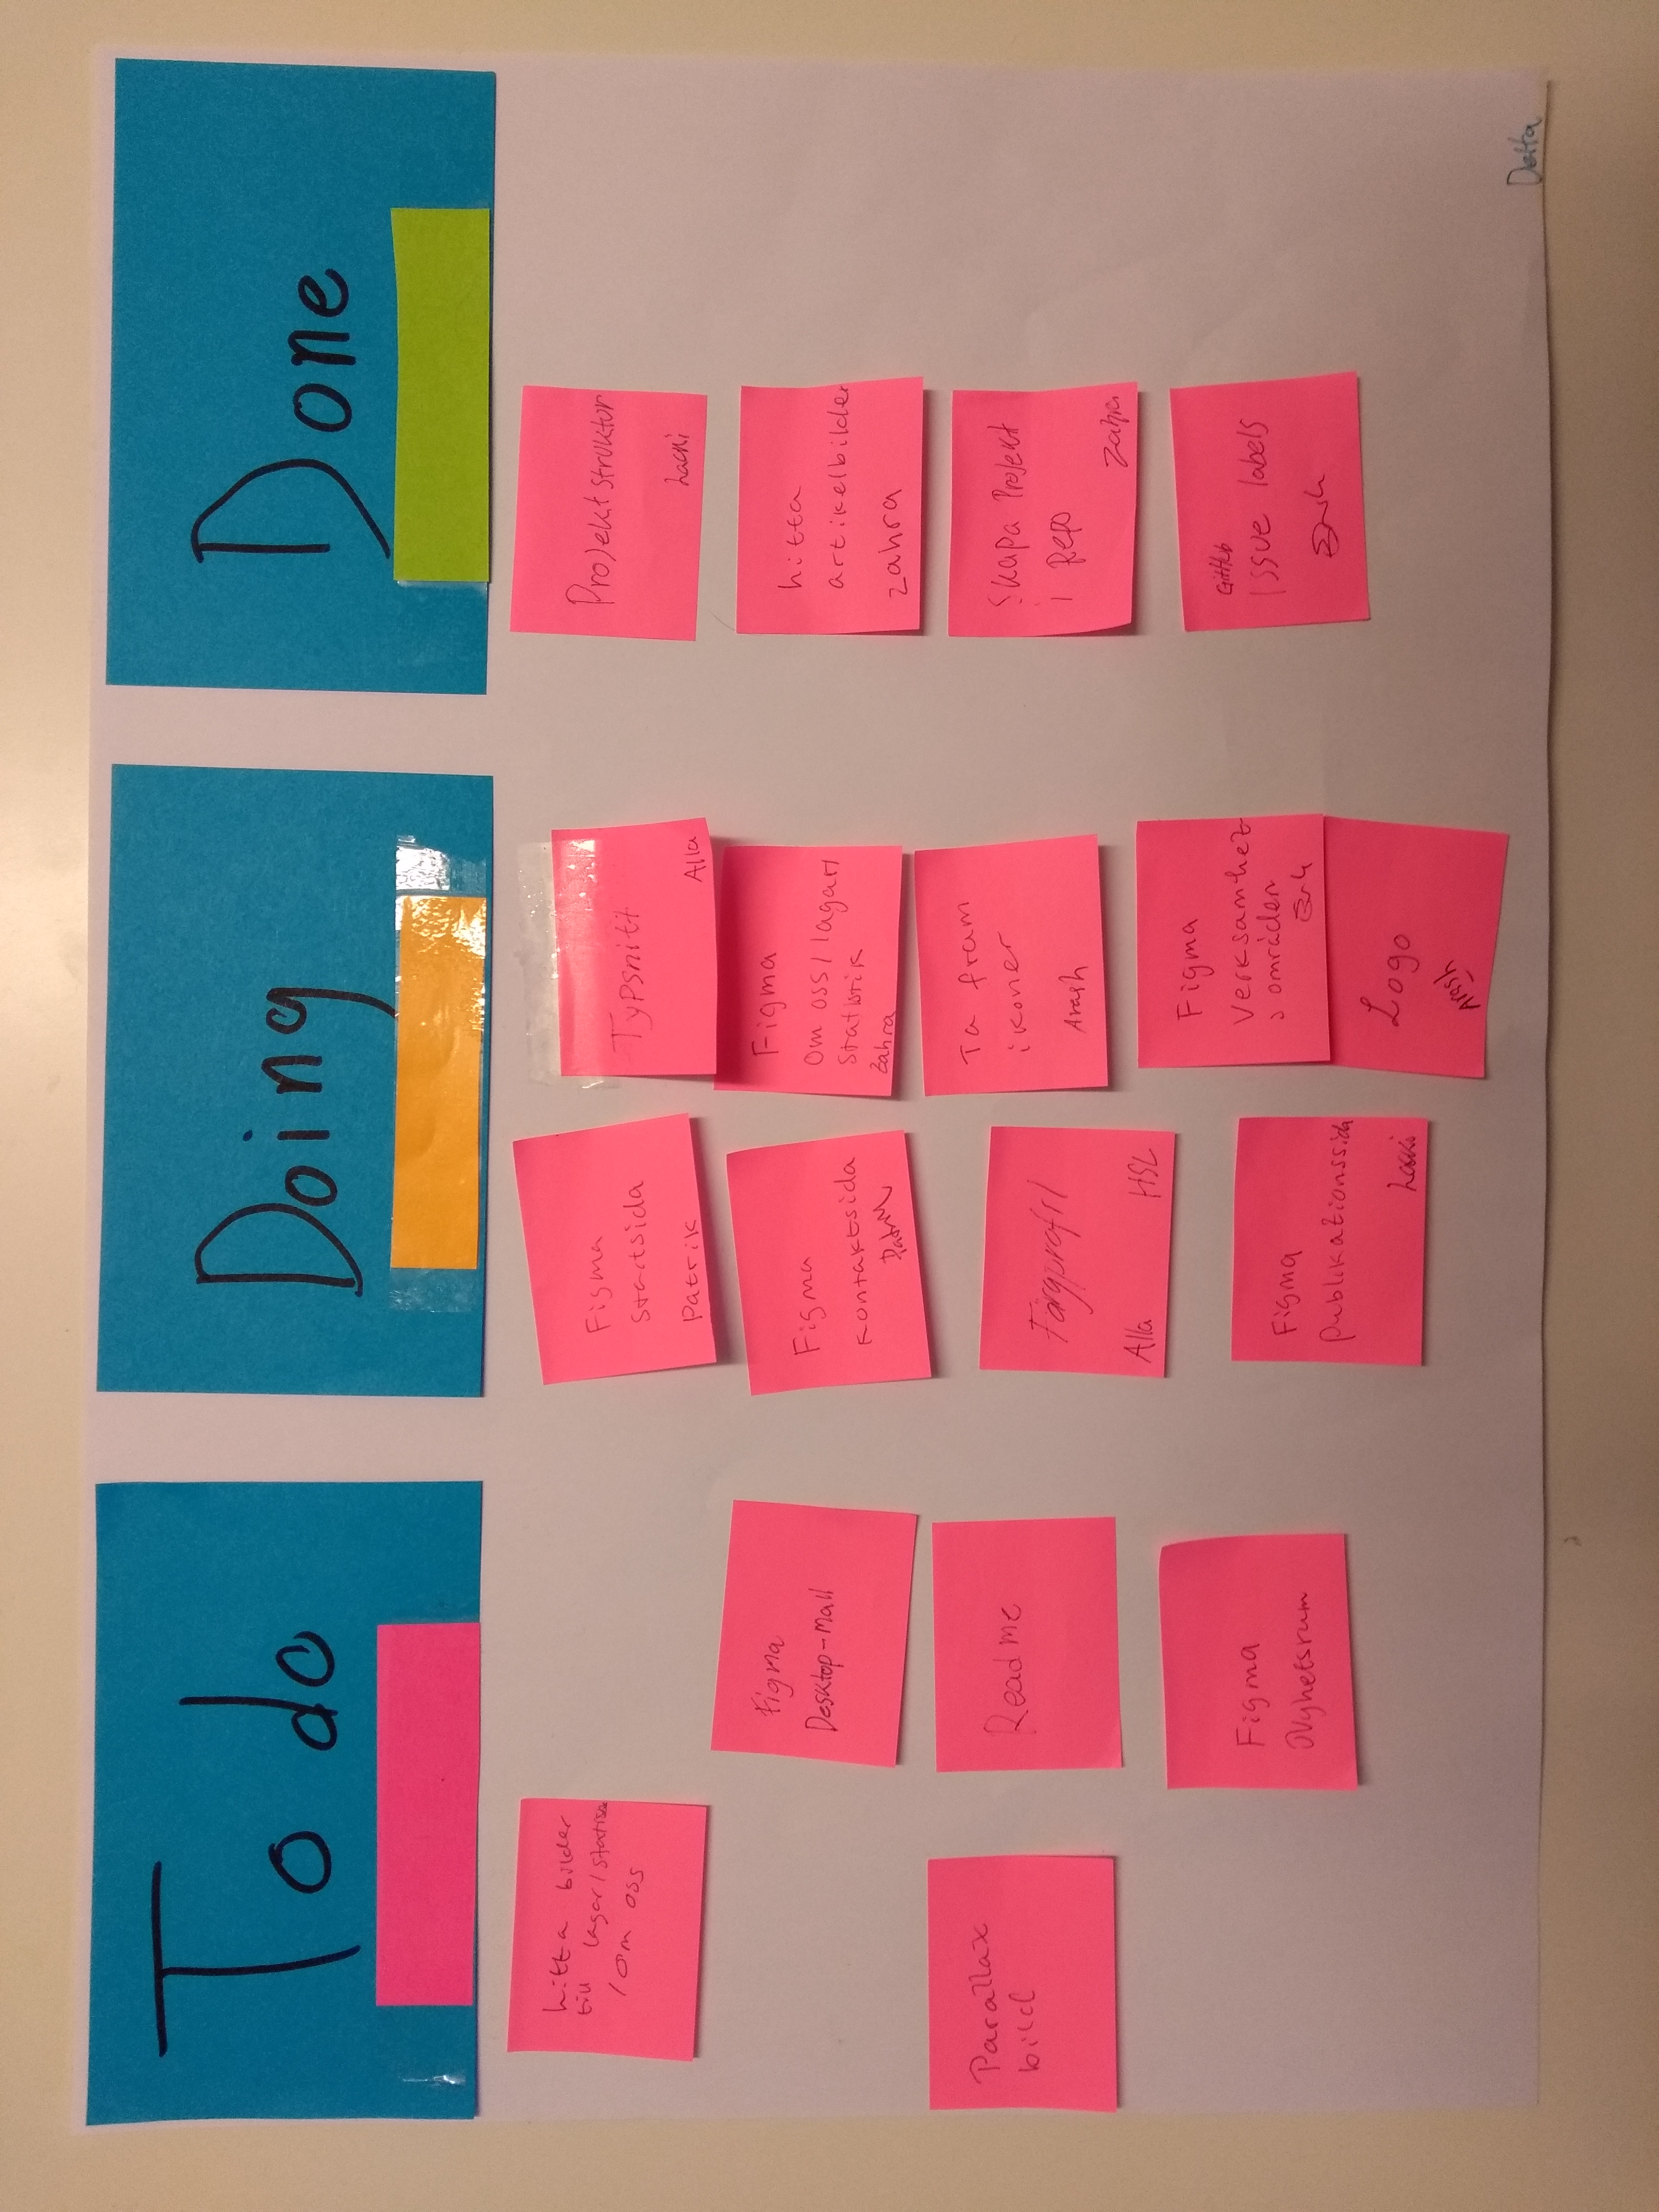 To do
hitta bilder
till lagar/statisik
/om oss
Figma
Desktop-Mall
Readme
Parallax
bild
Figma
Nyhetsrum
Doing
Figma
Startsida
Patrik
Figma
Kontaktsida
Patrik
Färgprofil
Alla HSL
Figma
Publikationssida
Typsnitt
Alla
Figma
Om oss/lagar/
Statistik
Zahra
Ta fram
ikoner
Arash
Figma
Verksamhet
s områden
Logo
Arash
Done
Projektstruktur
hitta
artikelbilder
zahra
Skapa Projekt
i Repo
Zahra
GitHub
Issue labels
Delta